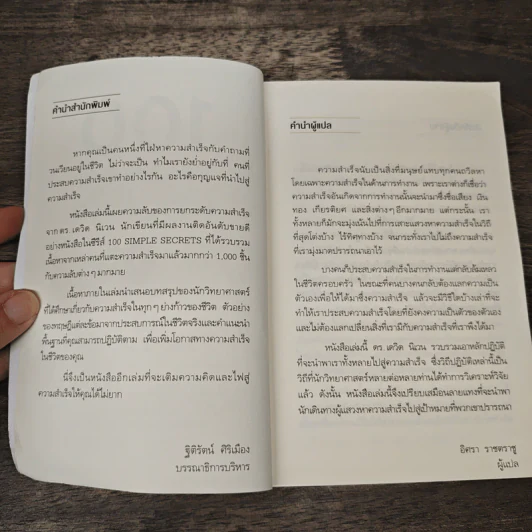 คำนำสำนักพิมพ์
หากคุณเป็นคนหนึ่งที่ใฝ่หาความสำเร็จกับคำถามที่
วนเวียนอยู่ในชีวิต ไม่ว่าจะเป็น ทำไมเรายังย่ำอยู่กับที่ คนที่
ประสบความสำเร็จเขาทำอย่างไรกัน อะไรคือกุญแจที่นำไปสู่
ความสำเร็จ
หนังสือเล่มนี้เผยความลับของการยกระดับความสำเร็จ
จาก ดร.เดวิด นีเวน นักเขียนที่มีผลงานติดอันดับขายดี
อย่างหนังสือในซีรีส์ 100 SIMPLE SECRETS ที่ได้รวบรวม
เนื้อหาจากเหล่าคนที่แสวงหาความสำเร็จมาแล้วมากกว่า 1,000 ชิ้น
กับความลับต่างๆ มากมาย
เนื้อหาภายในเล่มนำเสนอบทสรุปของนักวิทยาศาสตร์
ที่ได้ศึกษาเกี่ยวกับความสำเร็จในทุกๆ ย่างก้าวของชีวิต ตัวอย่าง
ของทฤษฎีแต่ละข้อมาจากประสบการณ์ในชีวิตจริงและคำแนะนำ
พื้นฐานที่คุณสามารถปฏิบัติตาม เพื่อเพิ่มโอกาสทางความสำเร็จ
ในชีวิตของคุณ
นี่จึงเป็นหนังสืออีกเล่มที่จะเติมความคิดและไฟสู่
ความสำเร็จให้คุณได้ไม่ยาก
ฐิติรัตน์ ศิริเมือง
บรรณาธิการบริหาร
คำนำผู้แปล
ความสำเร็จนับเป็นสิ่งที่มนุษย์แทบทุกคนถวิลหา
โดยเฉพาะความสำเร็จในด้านการทำงาน เพราะเราต่างก็เชื่อว่า
ความสำเร็จอันเกิดจากการทำงานนั้นจะนำมาซึ่งชื่อเสียง เงิน
ทอง เกียรติยศ และสิ่งต่างๆ อีกมากมาย แต่กระนั้น เรา
ทั้งหลายก็มักจะมุ่งเน้นไปที่การเสาะแสวงหาความสำเร็จในวิถี
ที่สุดโต่งบ้าง ไร้ทิศทางบ้าง จนกระทั่งเราไปไม่ถึงความสำเร็จ
ที่เรามุ่งมาดปรารถนาเอาไว้
บางคนก็ประสบความสำเร็จในการทำงานแต่กลับล้มเหลว
ในชีวิตครอบครัว ในขณะที่คนบางคนกลับต้องแลกความเป็น
ตัวเองเพื่อให้ได้มาซึ่งความสำเร็จ แล้วจะมีวิธีใดบ้างเล่าที่จะ
ทำให้เราประสบความสำเร็จโดยที่ยังคงความเป็นตัวของตัวเอง
และไม่ต้องแลกเปลี่ยนสิ่งที่เรามีกับความสำเร็จที่เราพึงได้มา
หนังสือเล่มนี้ ดร.เดวิด นีเวน รวบรวมเอาหลักปฏิบัติ
ที่จะนำพาเราทั้งหลายไปสู่ความสำเร็จ ซึ่งวิถีปฏิบัติเหล่านี้เป็น
วิถีที่นักวิทยาศาสตร์หลายต่อหลายท่านได้ทำการวิเคราะห์วิจัย
แล้ว ดังนั้น หนังสือเล่มนี้จึงเปรียบเสมือนลายแทงที่จะนำพา
นักเดินทางผู้แสวงหาความสำเร็จไปสู่เป้าหมายที่พวกเขาปรารถนา
อิศรา ราชตราชู
ผู้แปล